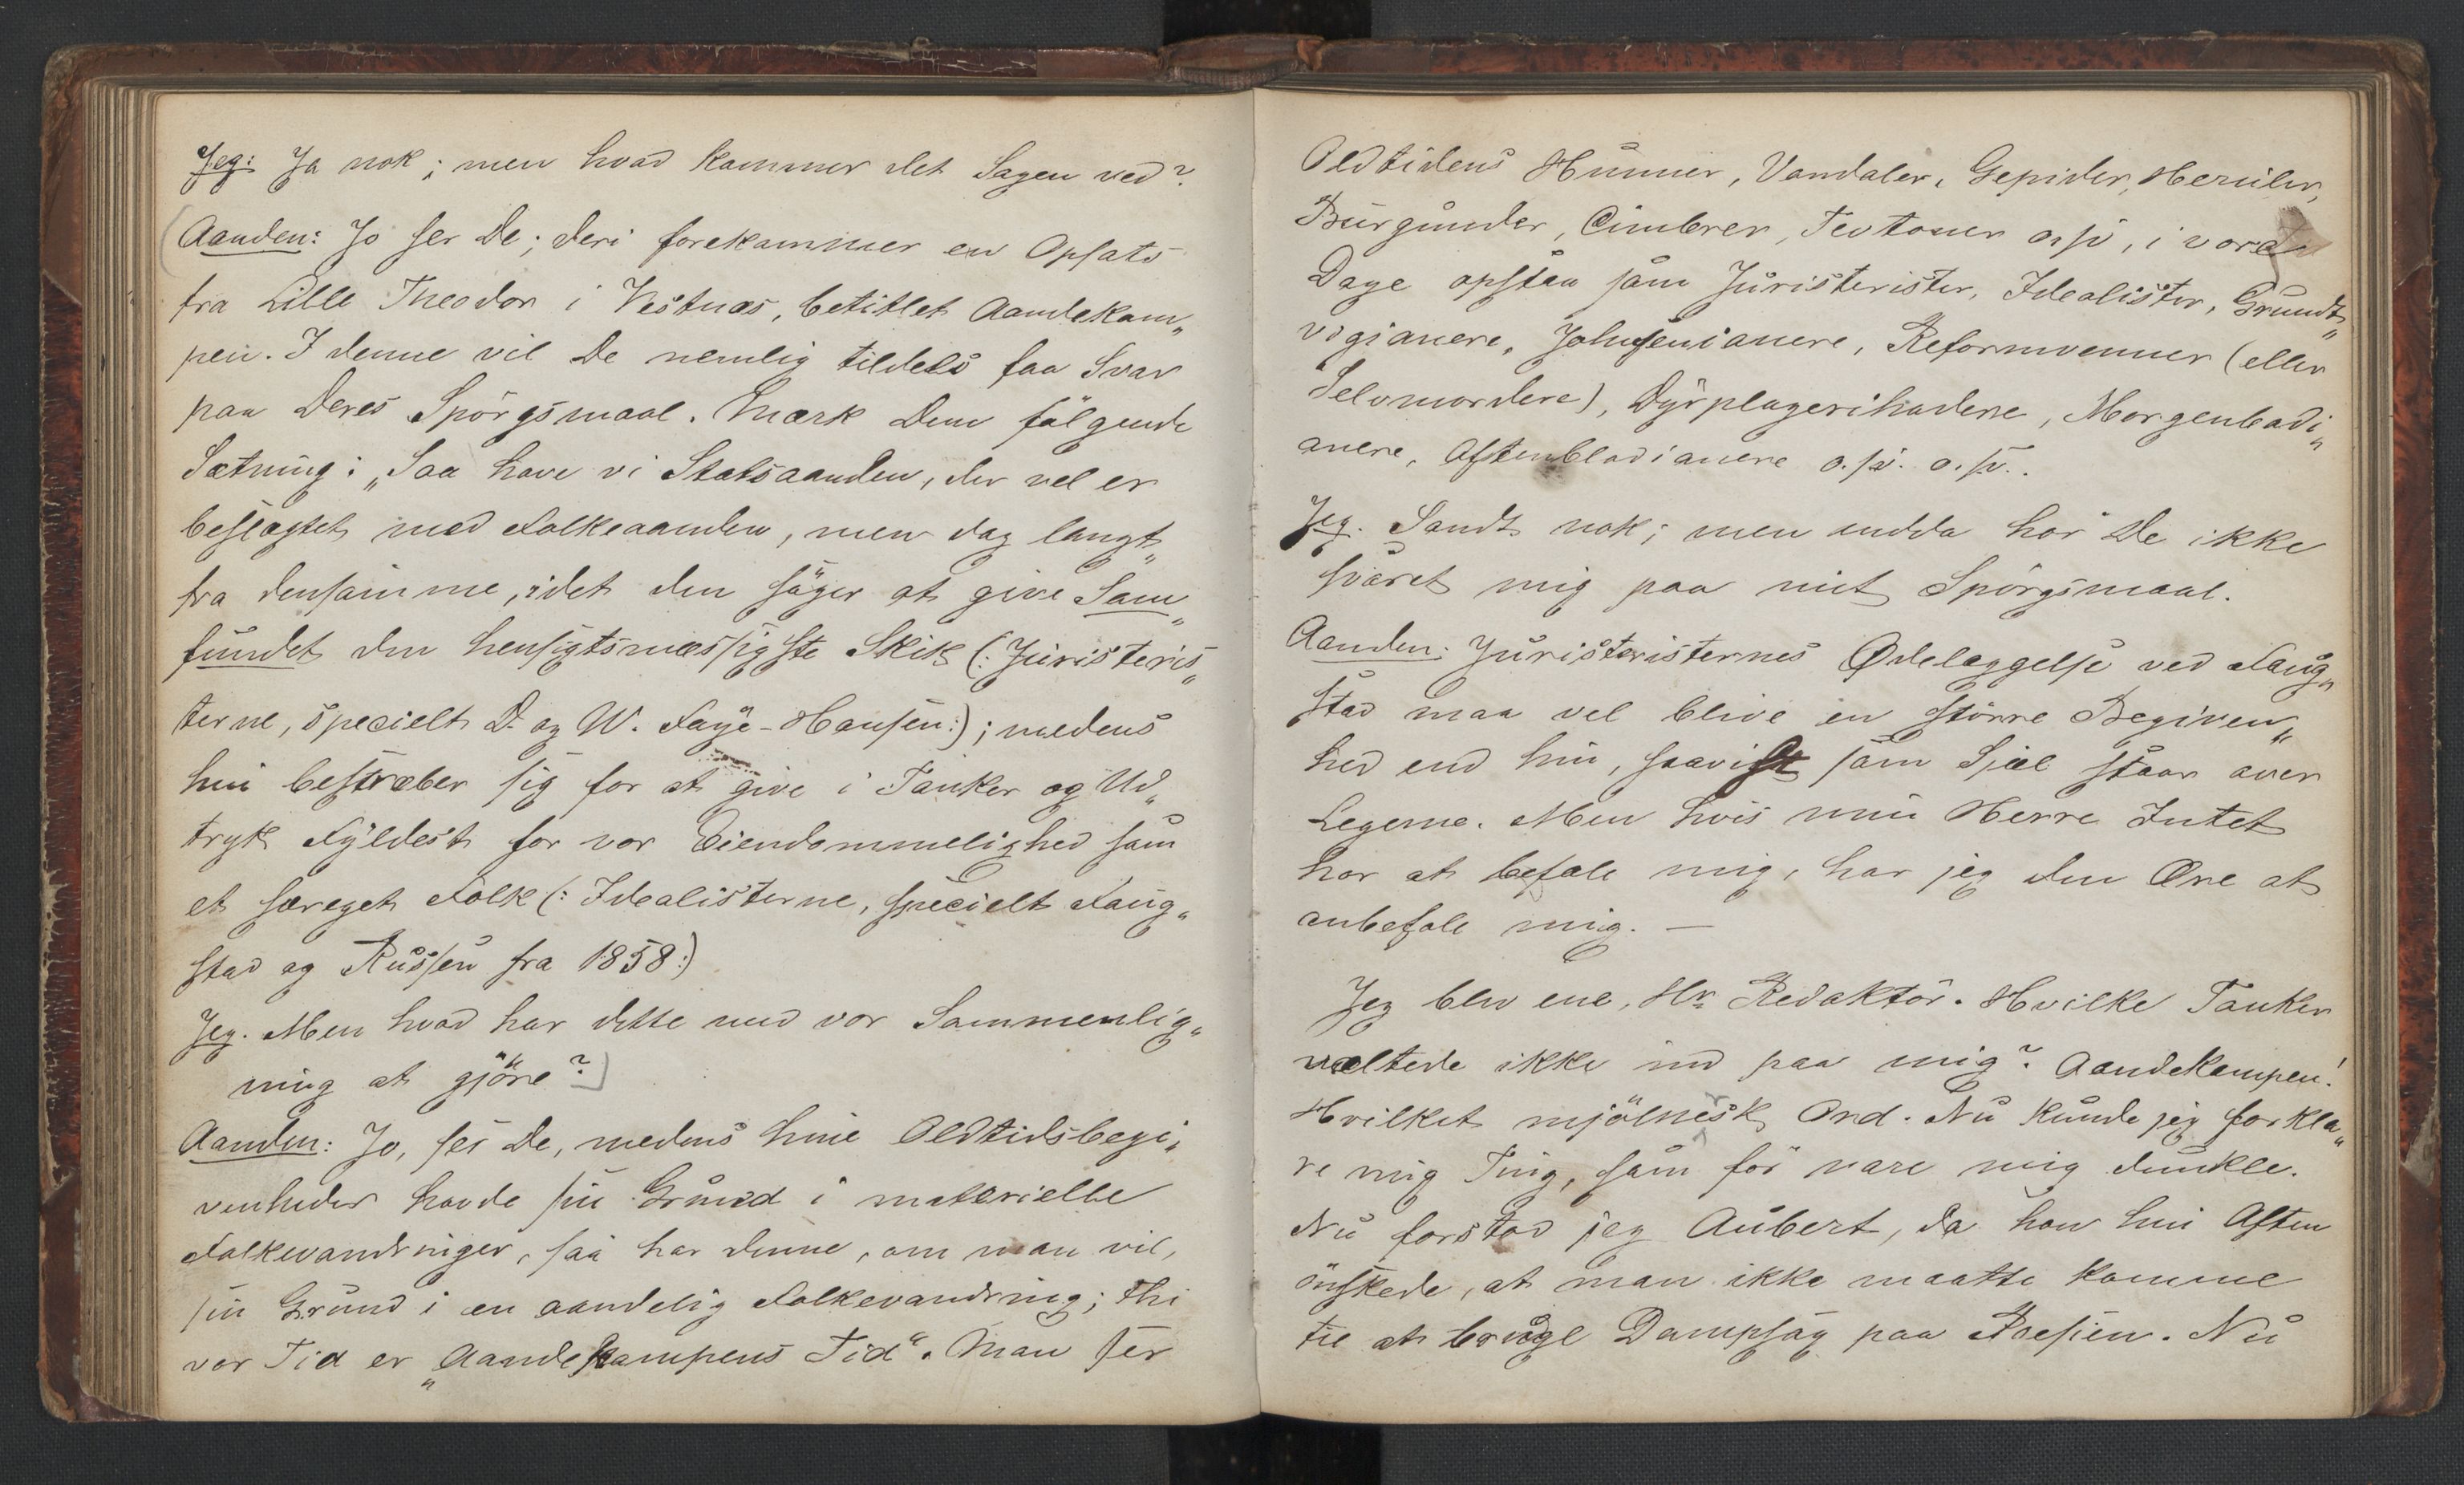 Jeg: Ja nok; men hvad kommer det Sagen ved?
(Aanden: Jo ser De; deri forekommer en Opsats
fra Lille Theodor i Vestnæs, betitlet Aandekam„
pen. I denne vil De nemlig tildels faa Svar
paa Deres Spörgsmaal. Mærk Dem fölgende
Sætning: „Saa have vi Statsaanden, der vel er
beslægtet med Folkeaanden, men dog langt„
fra densamme, idet den söger at give Sam„
fundet den hensigtsmæssigste Skik (: Juristeris„
terne, specielt D. og W. Faye-Hansen:); medens
hin bestræber sig for at give i Tanker og Ud„
tryk Fyldest for vor Eiendommelighed som
et særeget Folk (: Idealisterne, specielt Faug„
stad og Russen fra 1858:)
Jeg. Men hvad har dette med vor Sammenlig„
ning at gjöre?)
Aanden: Jo, ser De, medens hine Oldtidsbegi„
venheder havde sin Grund i materielle
Folkevandringer, saa har denne, om man vil,
sin Grund i en aandelig Folkevandring; thi
vor Tid er „Aandekampens Tid“. Man ser
Oldtidens Hunner, Vandaler, Gepider, Heruler,
Burgunder, Cimbrer, Teutoner o.s.v., i vore
Dage opstaa som Juristerister, Idealister, Grundt„
vigianere, Johnsenianere, Reformvenner (eller
Selvmordere), Dyrplagerihadere, Morgenbladi„
anere, Aftenbladianere o.s.v. o.s.v..
Jeg. Sandt nok; men endda har De ikke
svaret mig paa mit Spörgsmaal.
Aanden: Juristeristernes Ødelæggelse ved Faug„
stad maa vel blive en större Begiven„
hed end hin, saavist som Sjæl staar over
Legeme. Men hvis min Herre Intet
har at befale mig, har jeg den Ære at
anbefale mig. —
Jeg blev ene, Hr. Redaktör. Hvilke Tanker
væltede ikke ind paa mig? Aandekampen!
Hvilket mjölnersk Ord. Nu kunde jeg forkla„
re mig Ting, som för vare mig dunkle.
Nu forstod jeg Aubert, da han hin Aften
önskede, at man ikke maatte komme
til at bruge Dampsag paa Poesien. Nu